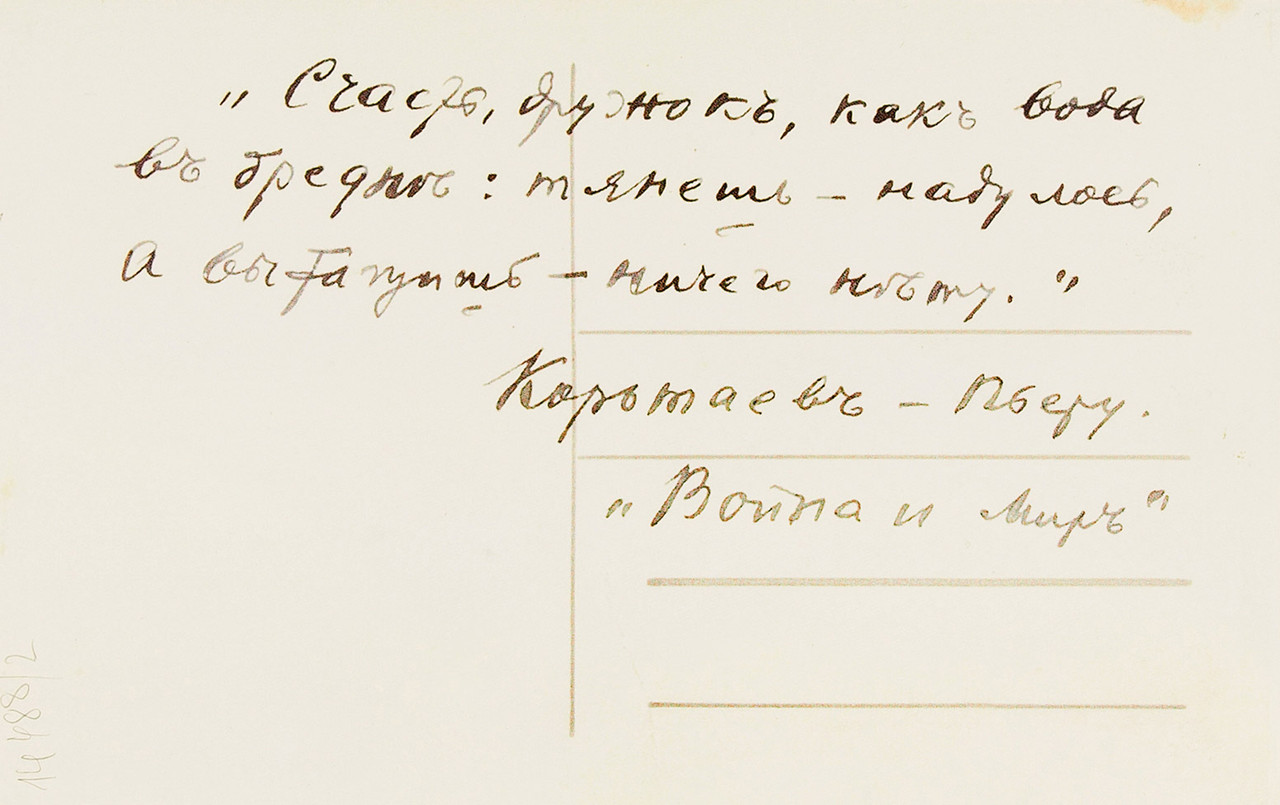 „Счастье, дружокъ, какъ вода
въ бреднѣ: тянешь – надулось,
а вытащишь – ничего нѣту."
Коратаевъ – Пьеру.
„Война и Миръ"
14488/2